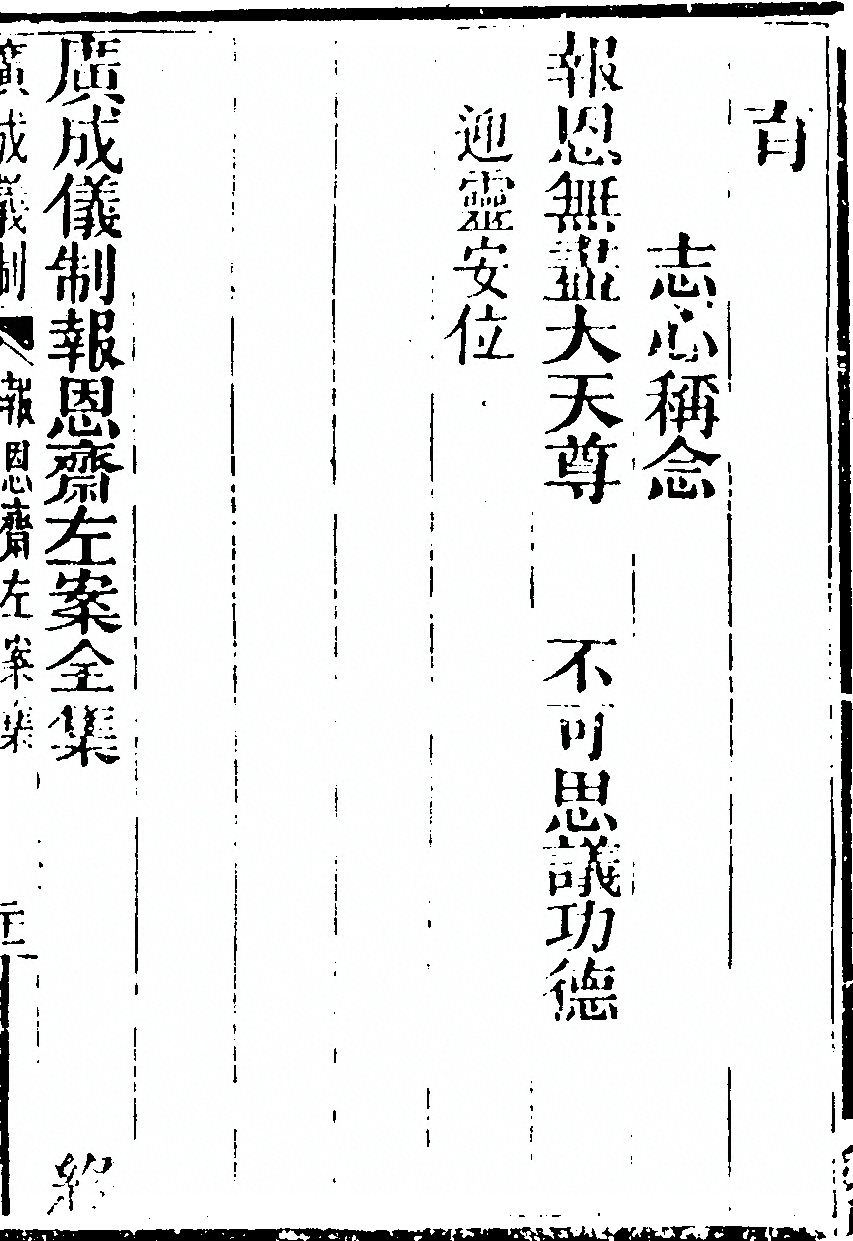 百
志心稱念
報恩無盡大天尊　不可思議功德
迎靈安位
廣成儀制報恩齋左案全集　終
廣成儀制　報恩齋左案集